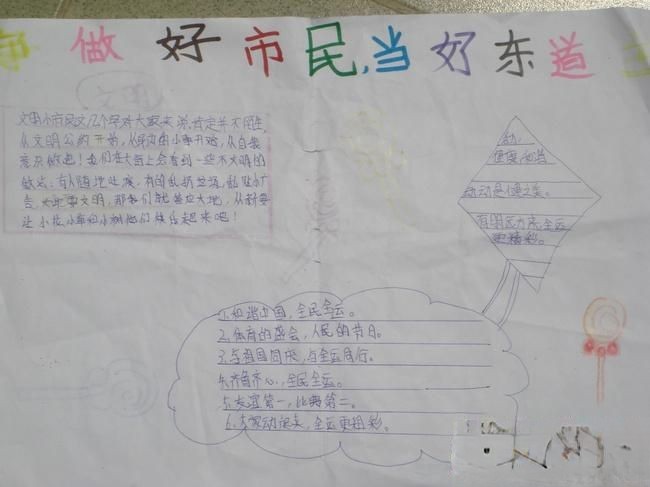 争做好市民,当好东道主
文明
文明小市民这几个字对大家来说,肯定并不陌生,
从文明公约开始,从身边的小事开始,从自我
意识做起!我们在大街上会看到一些不文明的
做法:有人随地吐痰,有的乱扔垃圾,乱贴小广
告
让小花,小草和小树他们快乐起来吧!
和
健康
运动是健之美。
有朋远方来,全运
更精彩。
1.和谐中国,全民全运。
2.体育的盛会,人民的节日。
3.与祖国同庆,与全运同行。
4.齐鲁齐心,全民全运。
5.友谊第一,比赛第二。
6.大家动起来,全运更精彩。